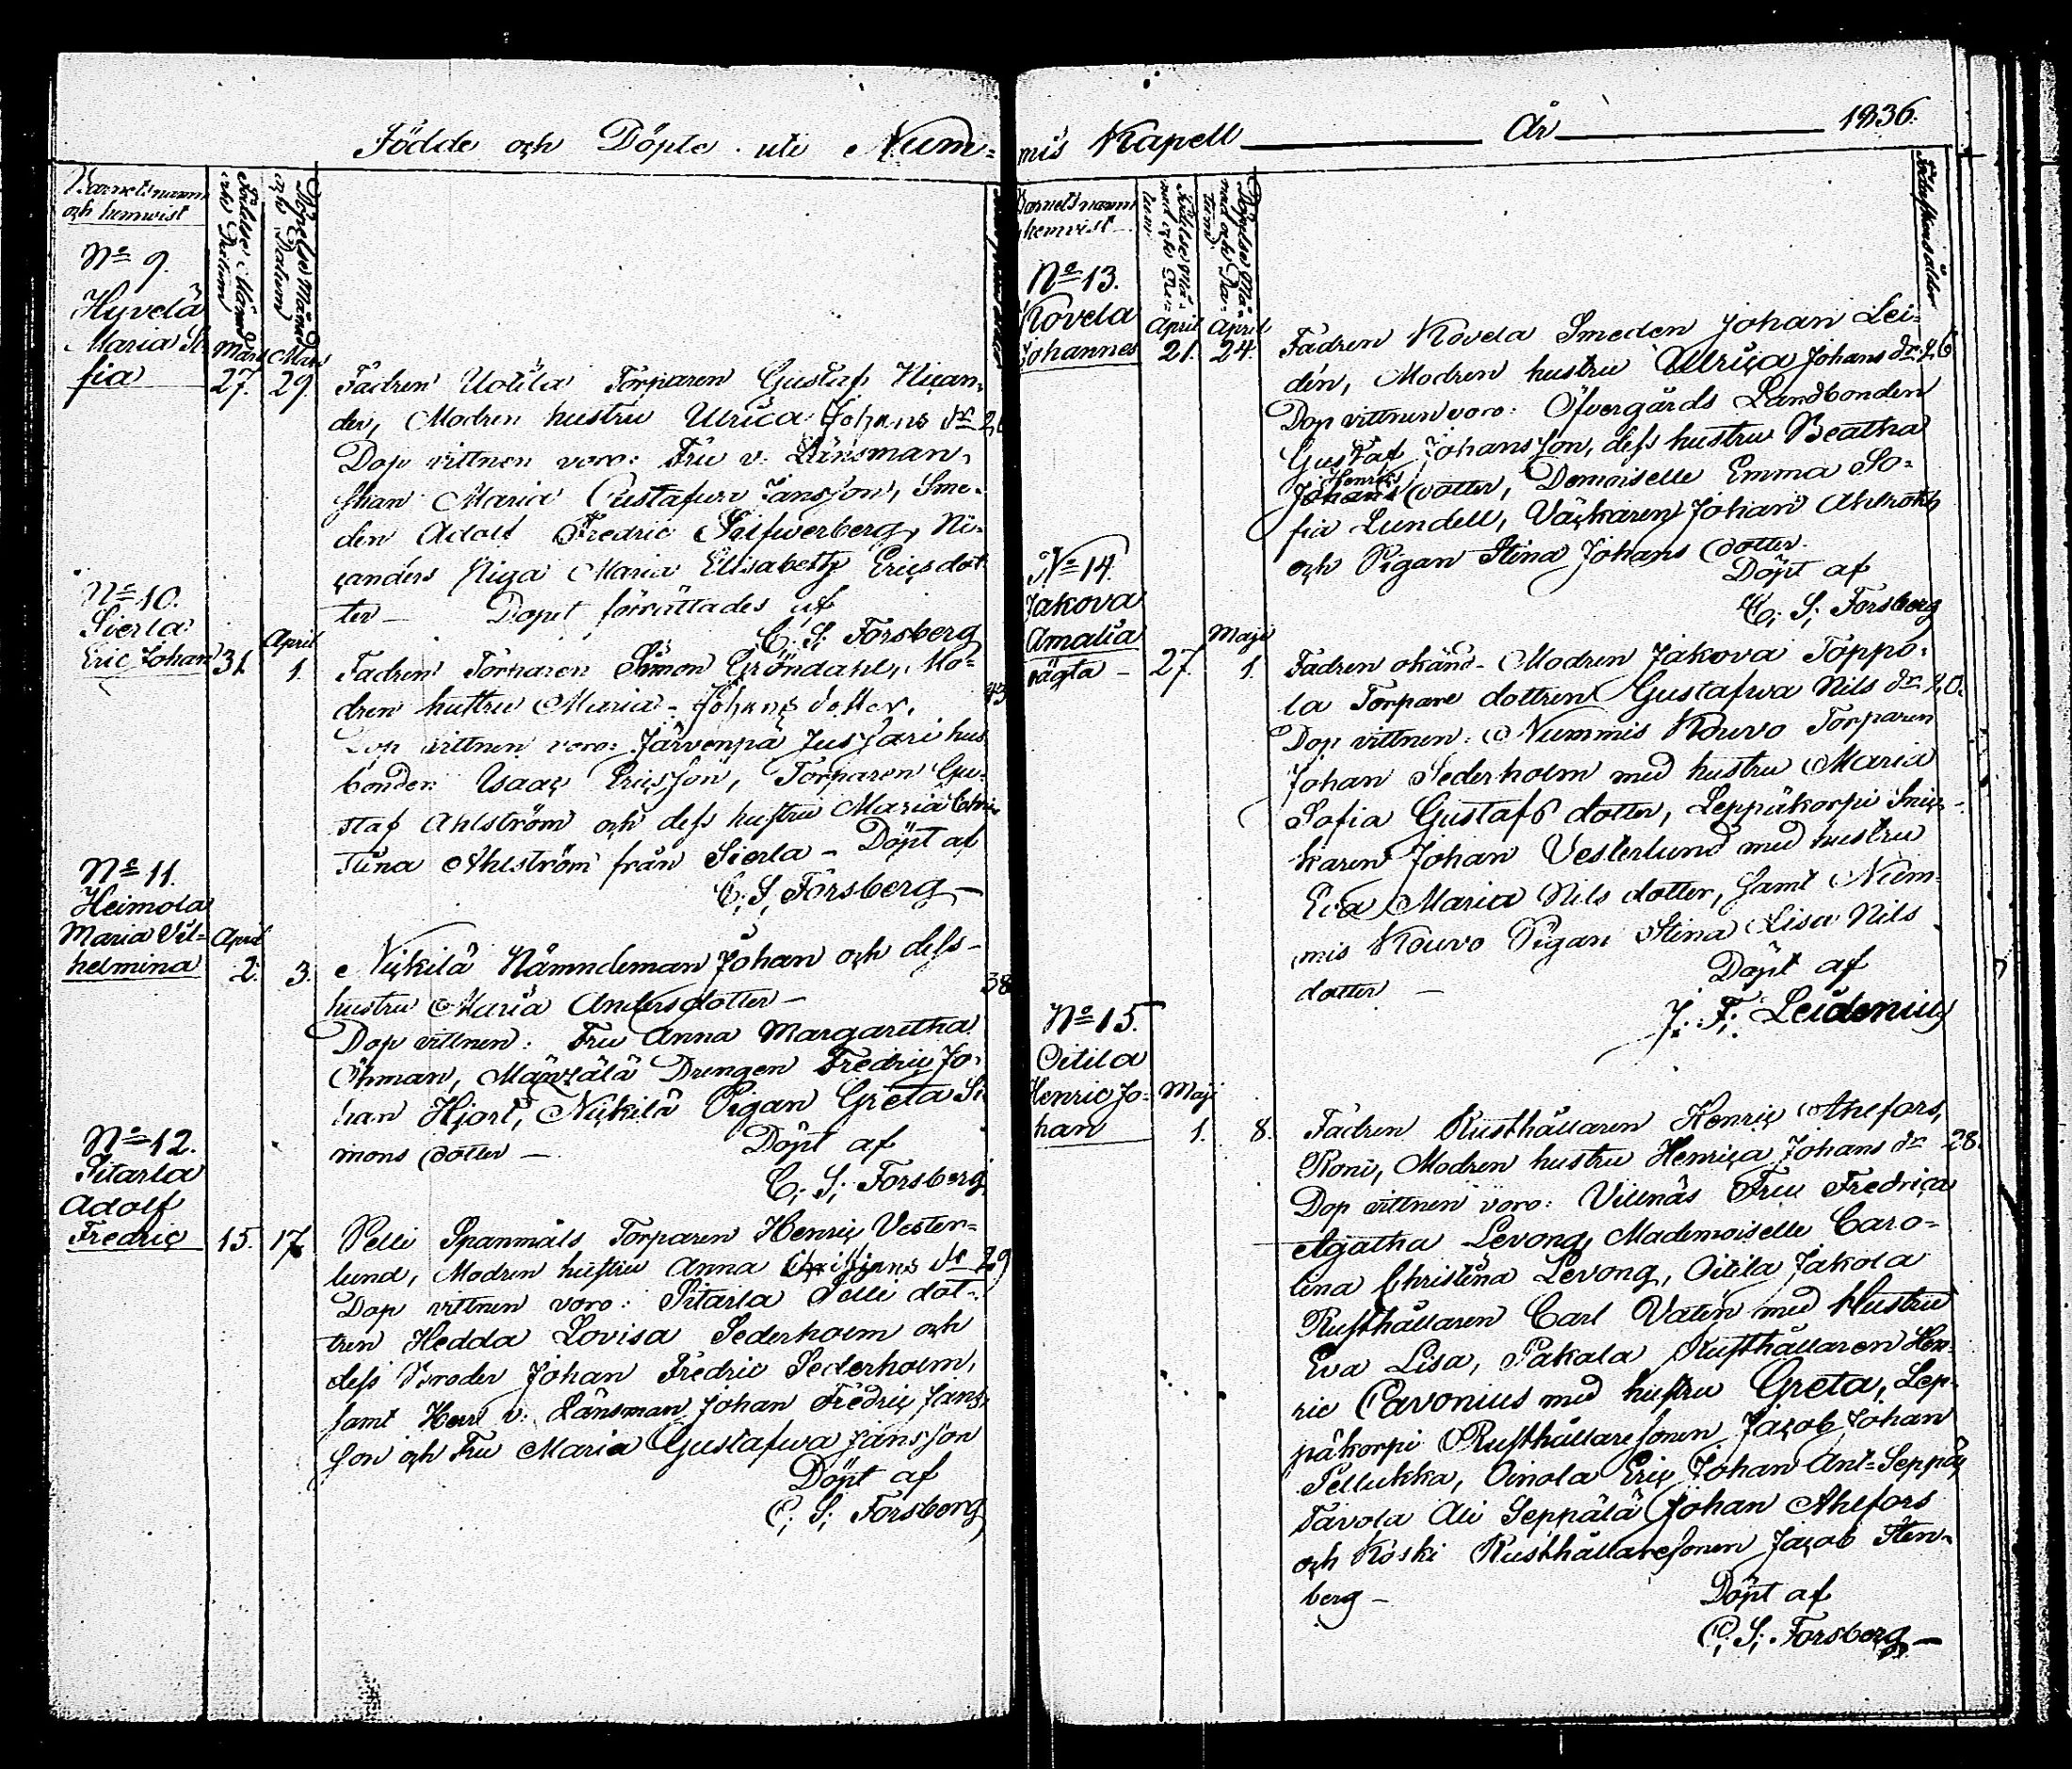 Födde och Döpte uti Num=
Barnets namn
och hemvist
Födelse Månad
och Datum
Döpelse Månad
och Datum
No 9.
Hyvelä
Maria So=
fia
Mars
27.
Mars
29.
Fadren Uotila Torparen Gustaf Nican=
der, Modren hustru Ulrica Johans dr
Dop vittnen voro: Fru v. Länsman=
skan Maria Gustafwa Jansson, Sme=
den Adolf Fredric Silfwerberg, Ni=
canders Piga Maria Elisabeth Ericsdot
ter — Dopet förrättades af
C; S; Forsberg
No 10.
Sierla
Eric Johan
31.
April
1.
Fadren Torparen Simon Gröndahl, Mo=
dren hustru Maria Johans dotter. 43
Dop vittnen voro: Järvenpä Jussari hus
bonden Isaac Ericsson, Torparen Gu=
staf Ahlström och dess hustru Maria
Stina Ahlström från Sierla — Döpt af
C; S; Forsberg —
No 11.
Heimola
Maria Vil=
helmina
April
2.
3.
Nickilä Nämndeman Johan och dess
hustru Maria Andersdotter — 38
Dop vittnen: Fru Anna Margaretha
Öhman, Mänzälä Drengen Fredric Jo=
han Hjort, Nickilä Pigan Greta Si
mons dotter — Döpt af
C; S; Forsberg
No 12.
Pitarla
Adolf
Fredric
15.
17.
Pelli Spanmåls Torparen Henric Vester=
lund, Modren hustru Anna Christians dr 29
Dop vittnen voro: Pitarla Pelli dot=
tren Hedda Lovisa Sederholm och
dess Broder Johan Fredric Sederholm,
samt Herr v. Länsman Johan Fredric Jans=
son och Fru Maria Gustafwa Jansson
Döpt af
C; S; Forsberg
mis Kapell — År — 1836.
Barnets namn
hemvist
Födelse Må=
nad och Da=
tum
Döpelse Må=
nad och Da=
tum
No 13.
Kovela
Johannes
April
21.
April
24.
Fadren Kovela Smeden Johan Lei=
den, Modren hustru Ulrica Johans dr 26
Dop vittnen voro: Öfvergårds Landbonden
Gustaf Johansson, dess hustru Beatha
Henrics
Johans dotter, Demoiselle Emma So=
fia Lundell, Väskaren Johan Ahlroth
och Pigan Stina Johans dotter.
Döpt af
C; S; Forsberg
No 14.
Jakova
Amalia
oägta —
27.
Maji
1.
Fadren okänd — Modren Jakova Toppo=
la Torpare dottren Gustafwa Nils dr 20.
Dop vittnen: Nummis Kouvo Torparen
Johan Sederholm med hustru Maria
Sofia Gustafs dotter, Leppäkorpi Snic=
karen Johan Vesterlund med hustru
Eva Maria Nils dotter, samt Num=
mis Kouvo Pigan Stina Lisa Nils
dotter — Döpt af
J. F; Leidenius
No 15.
Oitila
Henric Jo=
han
Maji
1.
8.
Fadren Rusthållaren Henric Ahlfors,
Roni, Modren hustru Henrica Johans dr 28.
Dop vittnen voro: Villnäs Fru Fredrica
Agatha Levong, Mademoiselle Caro=
lina Christina Levong, Oitila Jakola
Rusthållaren Carl Vatin med Hustru
Eva Lisa, Pakala Rusthållaren Hen=
ric Cavonius med hustru Greta, Lep=
päkorpi Rusthållaresonen Jacob Johan
Pellukka, Oinola Eric Johan Ant=Seppäs
Tavola Ali Seppälä Johan Ahlfors
och Koski Rusthållaresonen Jacob Sten=
berg — Döpt af
C; S; Forsberg —